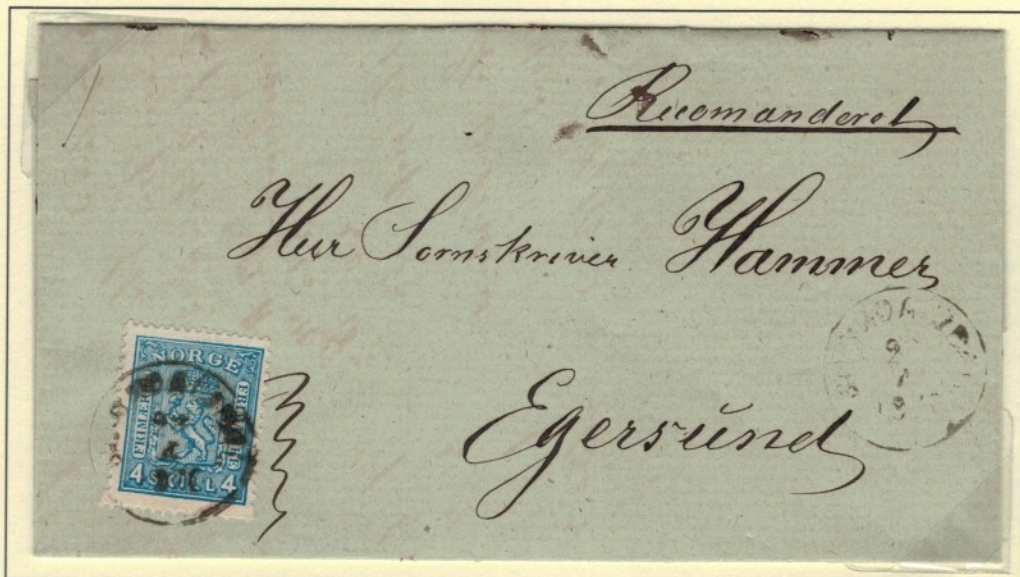 Recomanderet
Herr Sornskriver Hammer
Egersund
NORGE
FRIMÆRKE
4 SKILL 4